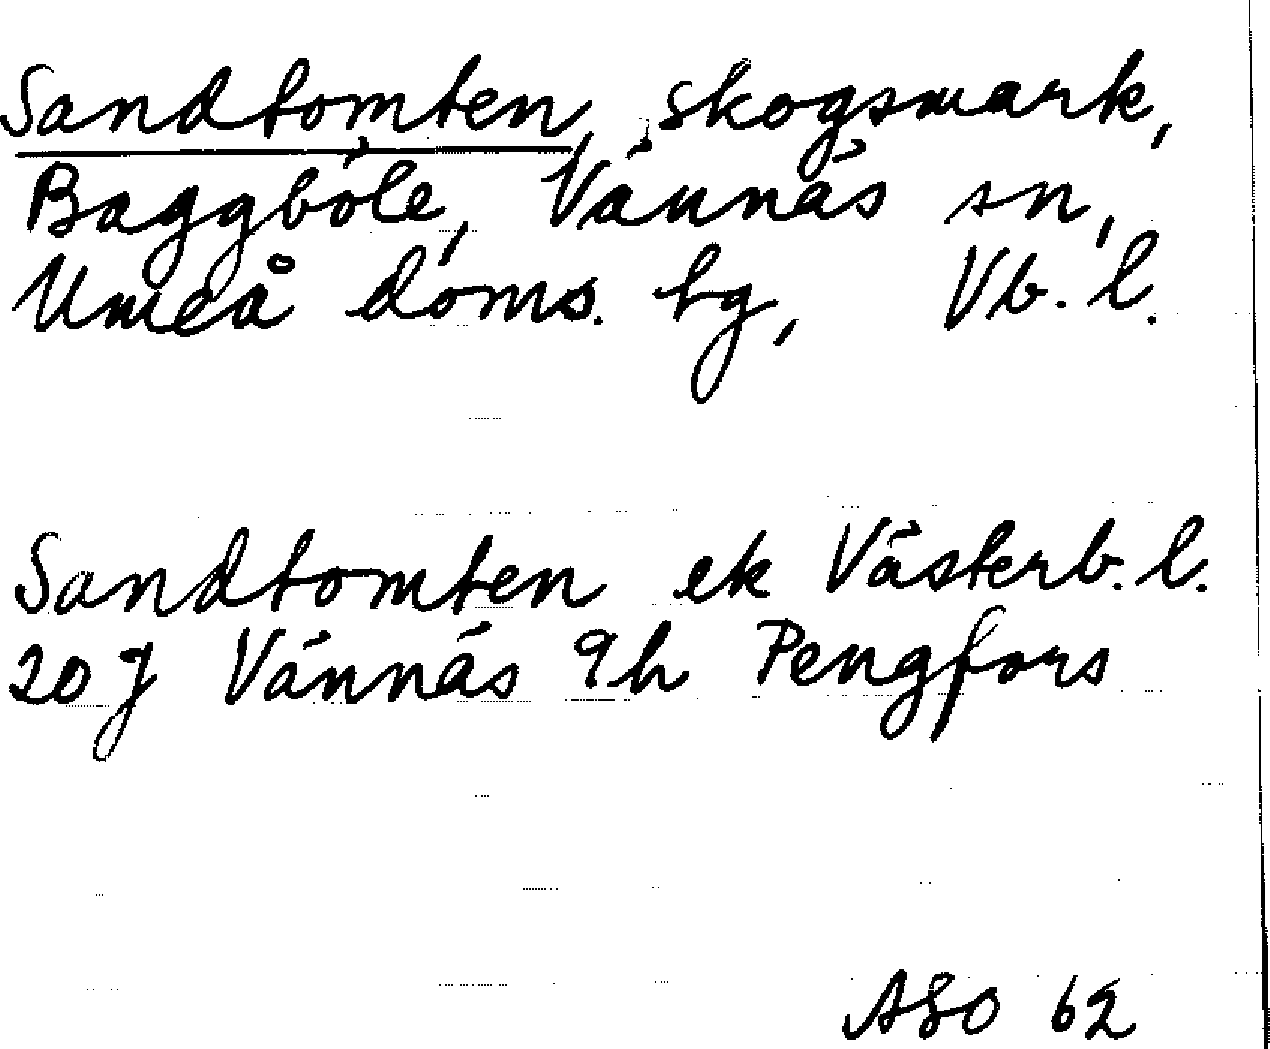 Sandtomten, skogsmark,
Baggböle, Vännäs sn,
Umeå doms. hg, Vb. l.
Sandtomten ek Västerb. l.
20 J Vännäs 9h Pengfors
ASO 62